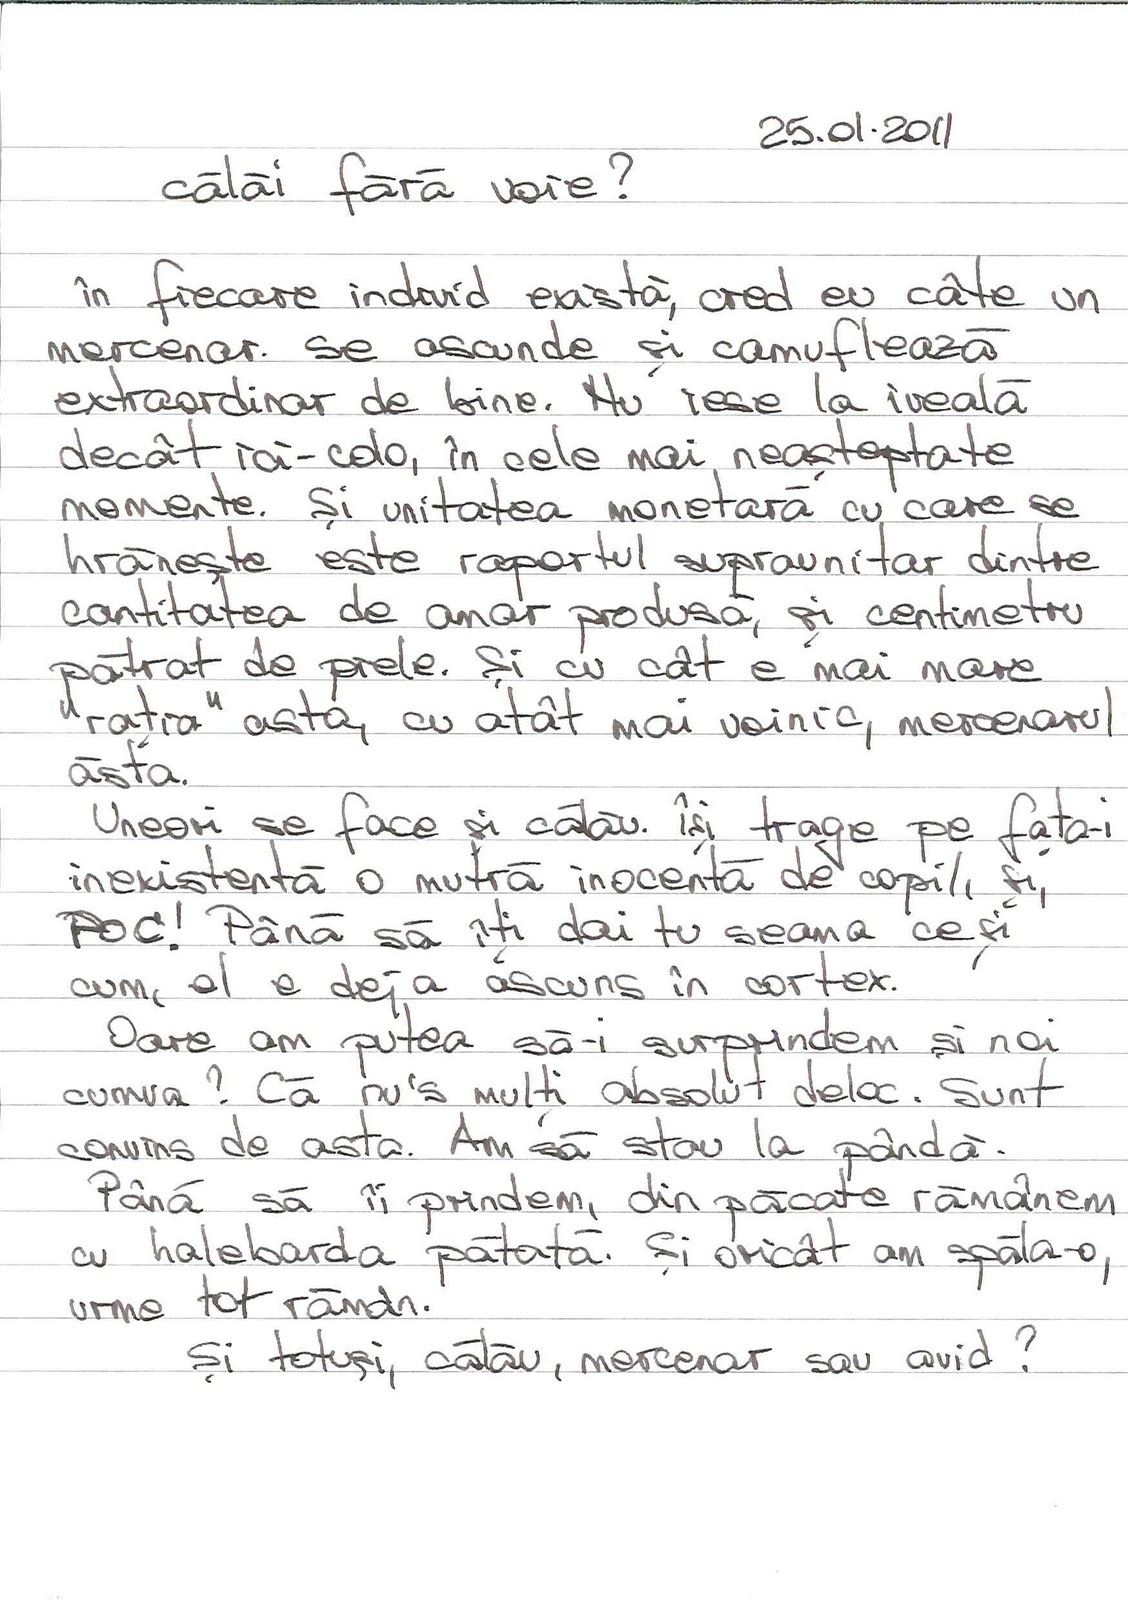 25.01.2011
călăi fără voie?
în fiecare individ există, cred eu câte un
mercenar. se ascunde și camuflează
extraordinar de bine. Nu iese la iveală
decât ici-colo, în cele mai neașteptate
momente. Și unitatea monetară cu care se
hrănește este raportul supraunitar dintre
cantitatea de amar produsă, și centimetru
pătrat de piele. Și cu cât e mai mare
"rația" asta, cu atât mai voinic, mercenarul
ăsta.
Uneori se face și călău. Își trage pe fața-i
inexistentă o mutră inocentă de copil, și,
POC! Până să îți dai tu seama ce și
cum, el e deja ascuns în cortex.
Oare am putea să-i surprindem și noi
cumva? Că nu's mulți absolut deloc. Sunt
convins de asta. Am să stau la pândă.
Până să îi prindem, din păcate rămânem
cu halebarda pătată. Și oricât am spăla-o,
urme tot rămân.
Și totuși, călău, mercenar sau avid?